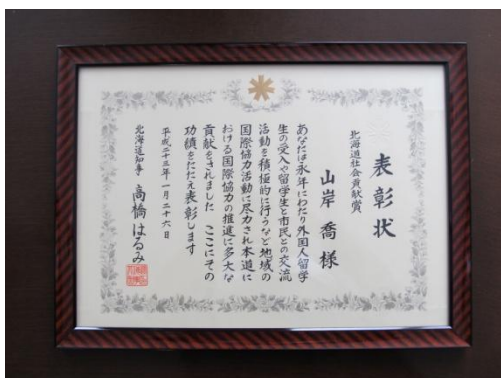 表彰状
北海道社会貢献賞
山岸 喬 様
あなたは永年にわたり外国人留学
生の受入や留学生と市民との交流
活動を積極的に行うなど地域の
国際協力活動に尽力され本道に
おける国際協力の推進に多大な
貢献をされました ここにその
功績をたたえ表彰します
平成二十三年一月二十六日
北海道知事 高橋はるみ